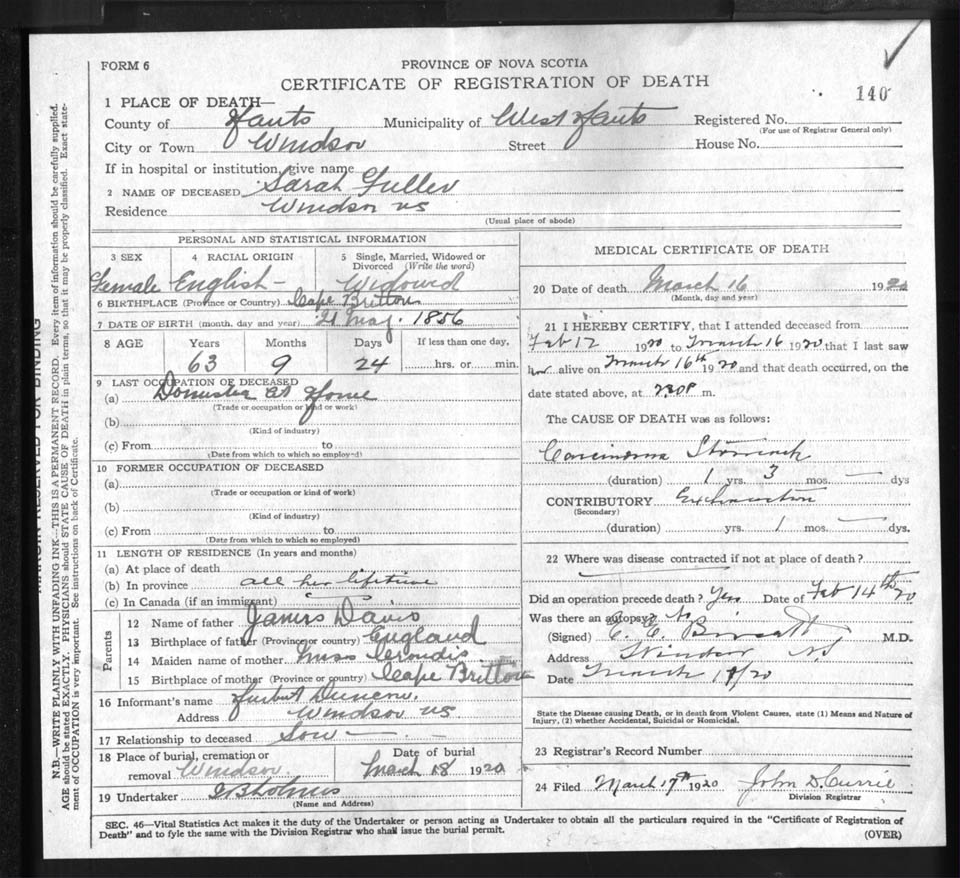 FORM 6
PROVINCE OF NOVA SCOTIA
CERTIFICATE OF REGISTRATION OF DEATH
140
1 PLACE OF DEATH—
County of Hants Municipality of West Hants Registered No.
(For use of Registrar General only)
City or Town Windsor Street House No.
If in hospital or institution, give name
2 NAME OF DECEASED Sarah Fuller
Residence Windsor NS
(Usual place of abode)
PERSONAL AND STATISTICAL INFORMATION
3 SEX 4 RACIAL ORIGIN 5 Single, Married, Widowed or Divorced (Write the word)
Female English Widowed
6 BIRTHPLACE (Province or Country) Cape Britton
7 DATE OF BIRTH (month, day and year) 21 May 1856
8 AGE Years Months Days If less than one day,
63 9 24 hrs. or min.
9 LAST OCCUPATION OF DECEASED
(a) Domestic at Home
(Trade or occupation or kind or work)
(b)
(Kind of industry)
(c) From to
(Date from which to which so employed)
10 FORMER OCCUPATION OF DECEASED
(a)
(Trade or occupation or kind of work)
(b)
(Kind of industry)
(c) From to
(Date from which to which so employed)
11 LENGTH OF RESIDENCE (In years and months)
(a) At place of death
(b) In province all her lifetime
(c) In Canada (if an immigrant)
Parents
12 Name of father James Davis
13 Birthplace of father (Province or country) England
14 Maiden name of mother Miss
15 Birthplace of mother (Province or country) Cape Britton
16 Informant's name Duncan
Address Windsor NS
17 Relationship to deceased Son
18 Place of burial, cremation or removal Windsor
Date of burial March 18 1920
19 Undertaker
(Name and Address)
MEDICAL CERTIFICATE OF DEATH
20 Date of death March 16 1920
(Month, day and year)
21 I HEREBY CERTIFY, that I attended deceased from
Feb 12 1920 to March 16 1920 that I last saw
her alive on March 16th 1920 and that death occurred, on
date stated above, at m.
The CAUSE OF DEATH was as follows:
Carcinoma Stomach
(duration) 1 yrs. 3 mos. — dys
CONTRIBUTORY Exhaustion
(Secondary)
(duration) yrs. 1 mos. — dys.
22 Where was disease contracted if not at place of death?
Did an operation precede death? Yes Date of Feb 14th 20
Was there an autopsy? No
(Signed) M.D.
Address Windsor NS
Date March 20
State the Disease causing Death, or in death from Violent Causes, state (1) Means and Nature of
Injury, (2) whether Accidental, Suicidal or Homicidal.
23 Registrar's Record Number
24 Filed March 17th 1920 John D. Currie
Division Registrar
SEC. 46—Vital Statistics Act makes it the duty of the Undertaker or person acting as Undertaker to obtain all the particulars required in the "Certificate of Registration of
Death" and to fyle the same with the Division Registrar who shall issue the burial permit.
(OVER)
MARGIN RESERVED FOR BINDING
N.B.—WRITE PLAINLY WITH UNFADING INK—THIS IS A PERMANENT RECORD. Every item of information should be carefully supplied.
AGE should be stated EXACTLY. PHYSICIANS should STATE CAUSE OF DEATH in plain terms, so that it may be properly classified. Exact state-
ment of OCCUPATION is very important. See instructions on back of Certificate.